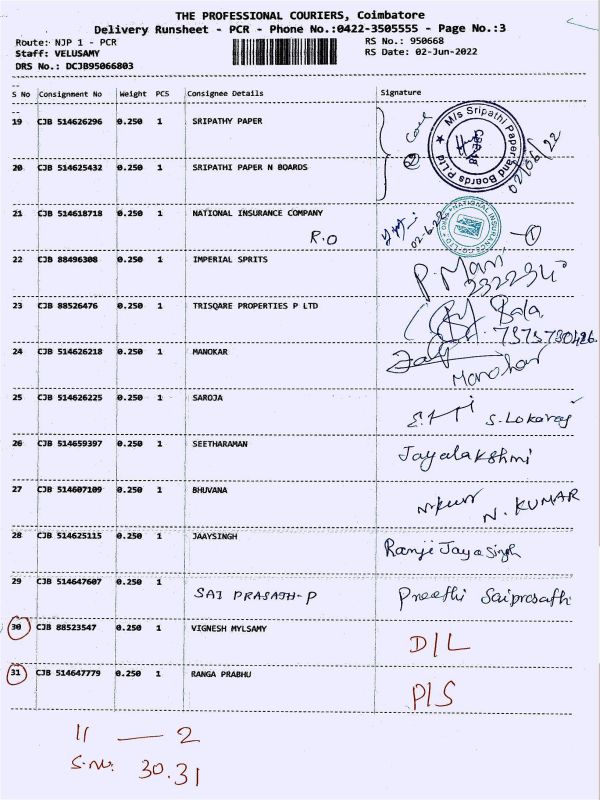 THE PROFESSIONAL COURIERS, Coimbatore
Delivery Runsheet - PCR - Phone No.:0422-3505555 - Page No.:3
Route: NJP 1 - PCR RS No.: 950668
Staff: VELUSAMY RS Date: 02-Jun-2022
DRS No.: DCJB95066803
S No Consignment No Weight PCS Consignee Details Signature
19 CJB 514626296 0.250 1 SRIPATHY PAPER
M/s Sripathi Paper and Boards P Ltd
02/06/22
20 CJB 514625432 0.250 1 SRIPATHI PAPER N BOARDS
21 CJB 514618718 0.250 1 NATIONAL INSURANCE COMPANY
R.O 02-6-22 1
22 CJB 88496308 0.250 1 IMPERIAL SPRITS
P. Mari
23 CJB 88526476 0.250 1 TRISQARE PROPERTIES P LTD
Bala
24 CJB 514626218 0.250 1 MANOKAR
Manohar
25 CJB 514626225 0.250 1 SAROJA
S. Lokaraj
26 CJB 514659397 0.250 1 SEETHARAMAN Jayalakshmi
27 CJB 514607109 0.250 1 BHUVANA
N. KUMAR
28 CJB 514625115 0.250 1 JAAYSINGH
Ramji Jayasingh
29 CJB 514647607 0.250 1
SAI PRASATH-P Preethi Saiprasath
30 CJB 88523547 0.250 1 VIGNESH MYLSAMY
D/L
31 CJB 514647779 0.250 1 RANGA PRABHU
P/S
11 — 2
S.No. 30.31